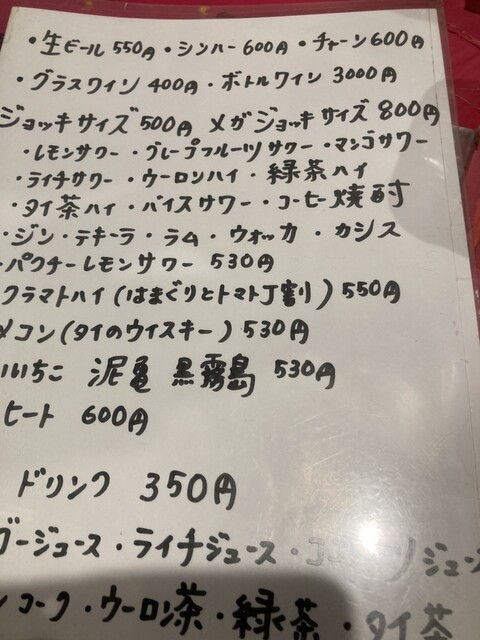 ・生ビール 550円 ・シンハー 600円 ・チャーン 600円
・グラスワイン 400円 ・ボトルワイン 3000円
ジョッキサイズ 500円 メガジョッキサイズ 800円
・レモンサワー ・グレープフルーツサワー ・マンゴサワー
・ライチサワー ・ウーロンハイ ・緑茶ハイ
・タイ茶ハイ ・バイスサワー ・コーヒー焼酎
・ジン ・テキーラ ・ラム ・ウォッカ ・カシス
・パクチーレモンサワー 530円
クラマトハイ(はまぐりとトマト丁割) 550円
メコン(タイのウイスキー) 530円
いいちこ 泥亀 黒霧島 530円
ヒート 600円
ドリンク 350円
グージュース ・ライチジュース ・コ ジュース
コーク ・ウーロン茶 ・緑茶 ・タイ茶